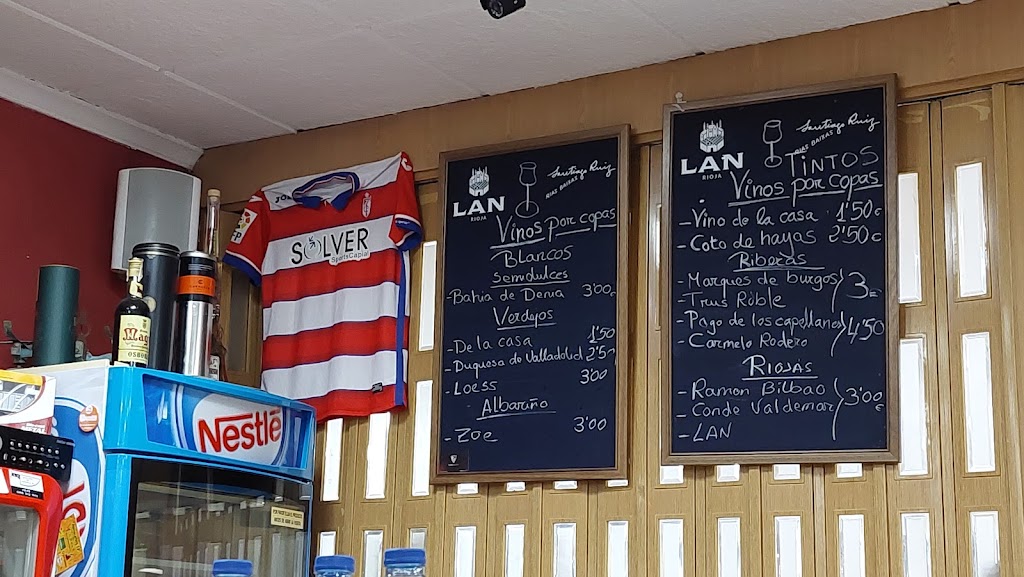 SOLVER
SportsCapital
Nestlé
LAN
RIOJA
Santiago Ruiz
RIAS BAIXAS
Vinos por copas
Blancos
Semidulces
- Bahia de Denia 3'00€
Verdejos
- De la casa 1'50
- Duquesa de Valladolid 2'50
- Loess 3'00
Albariño
- Zoe 3'00
LAN
RIOJA
Santiago Ruiz
RIAS BAIXAS
TINTOS
Vinos por copas
- Vino de la casa 1'50€
- Coto de hayas 2'50€
Riberas
- Marques de burgos
- Trus Roble
3€
- Pago de los capellanes
- Carmelo Rodero
4'50
RIOJAS
- Ramon Bilbao
- Conde Valdemar
- LAN
3'00€